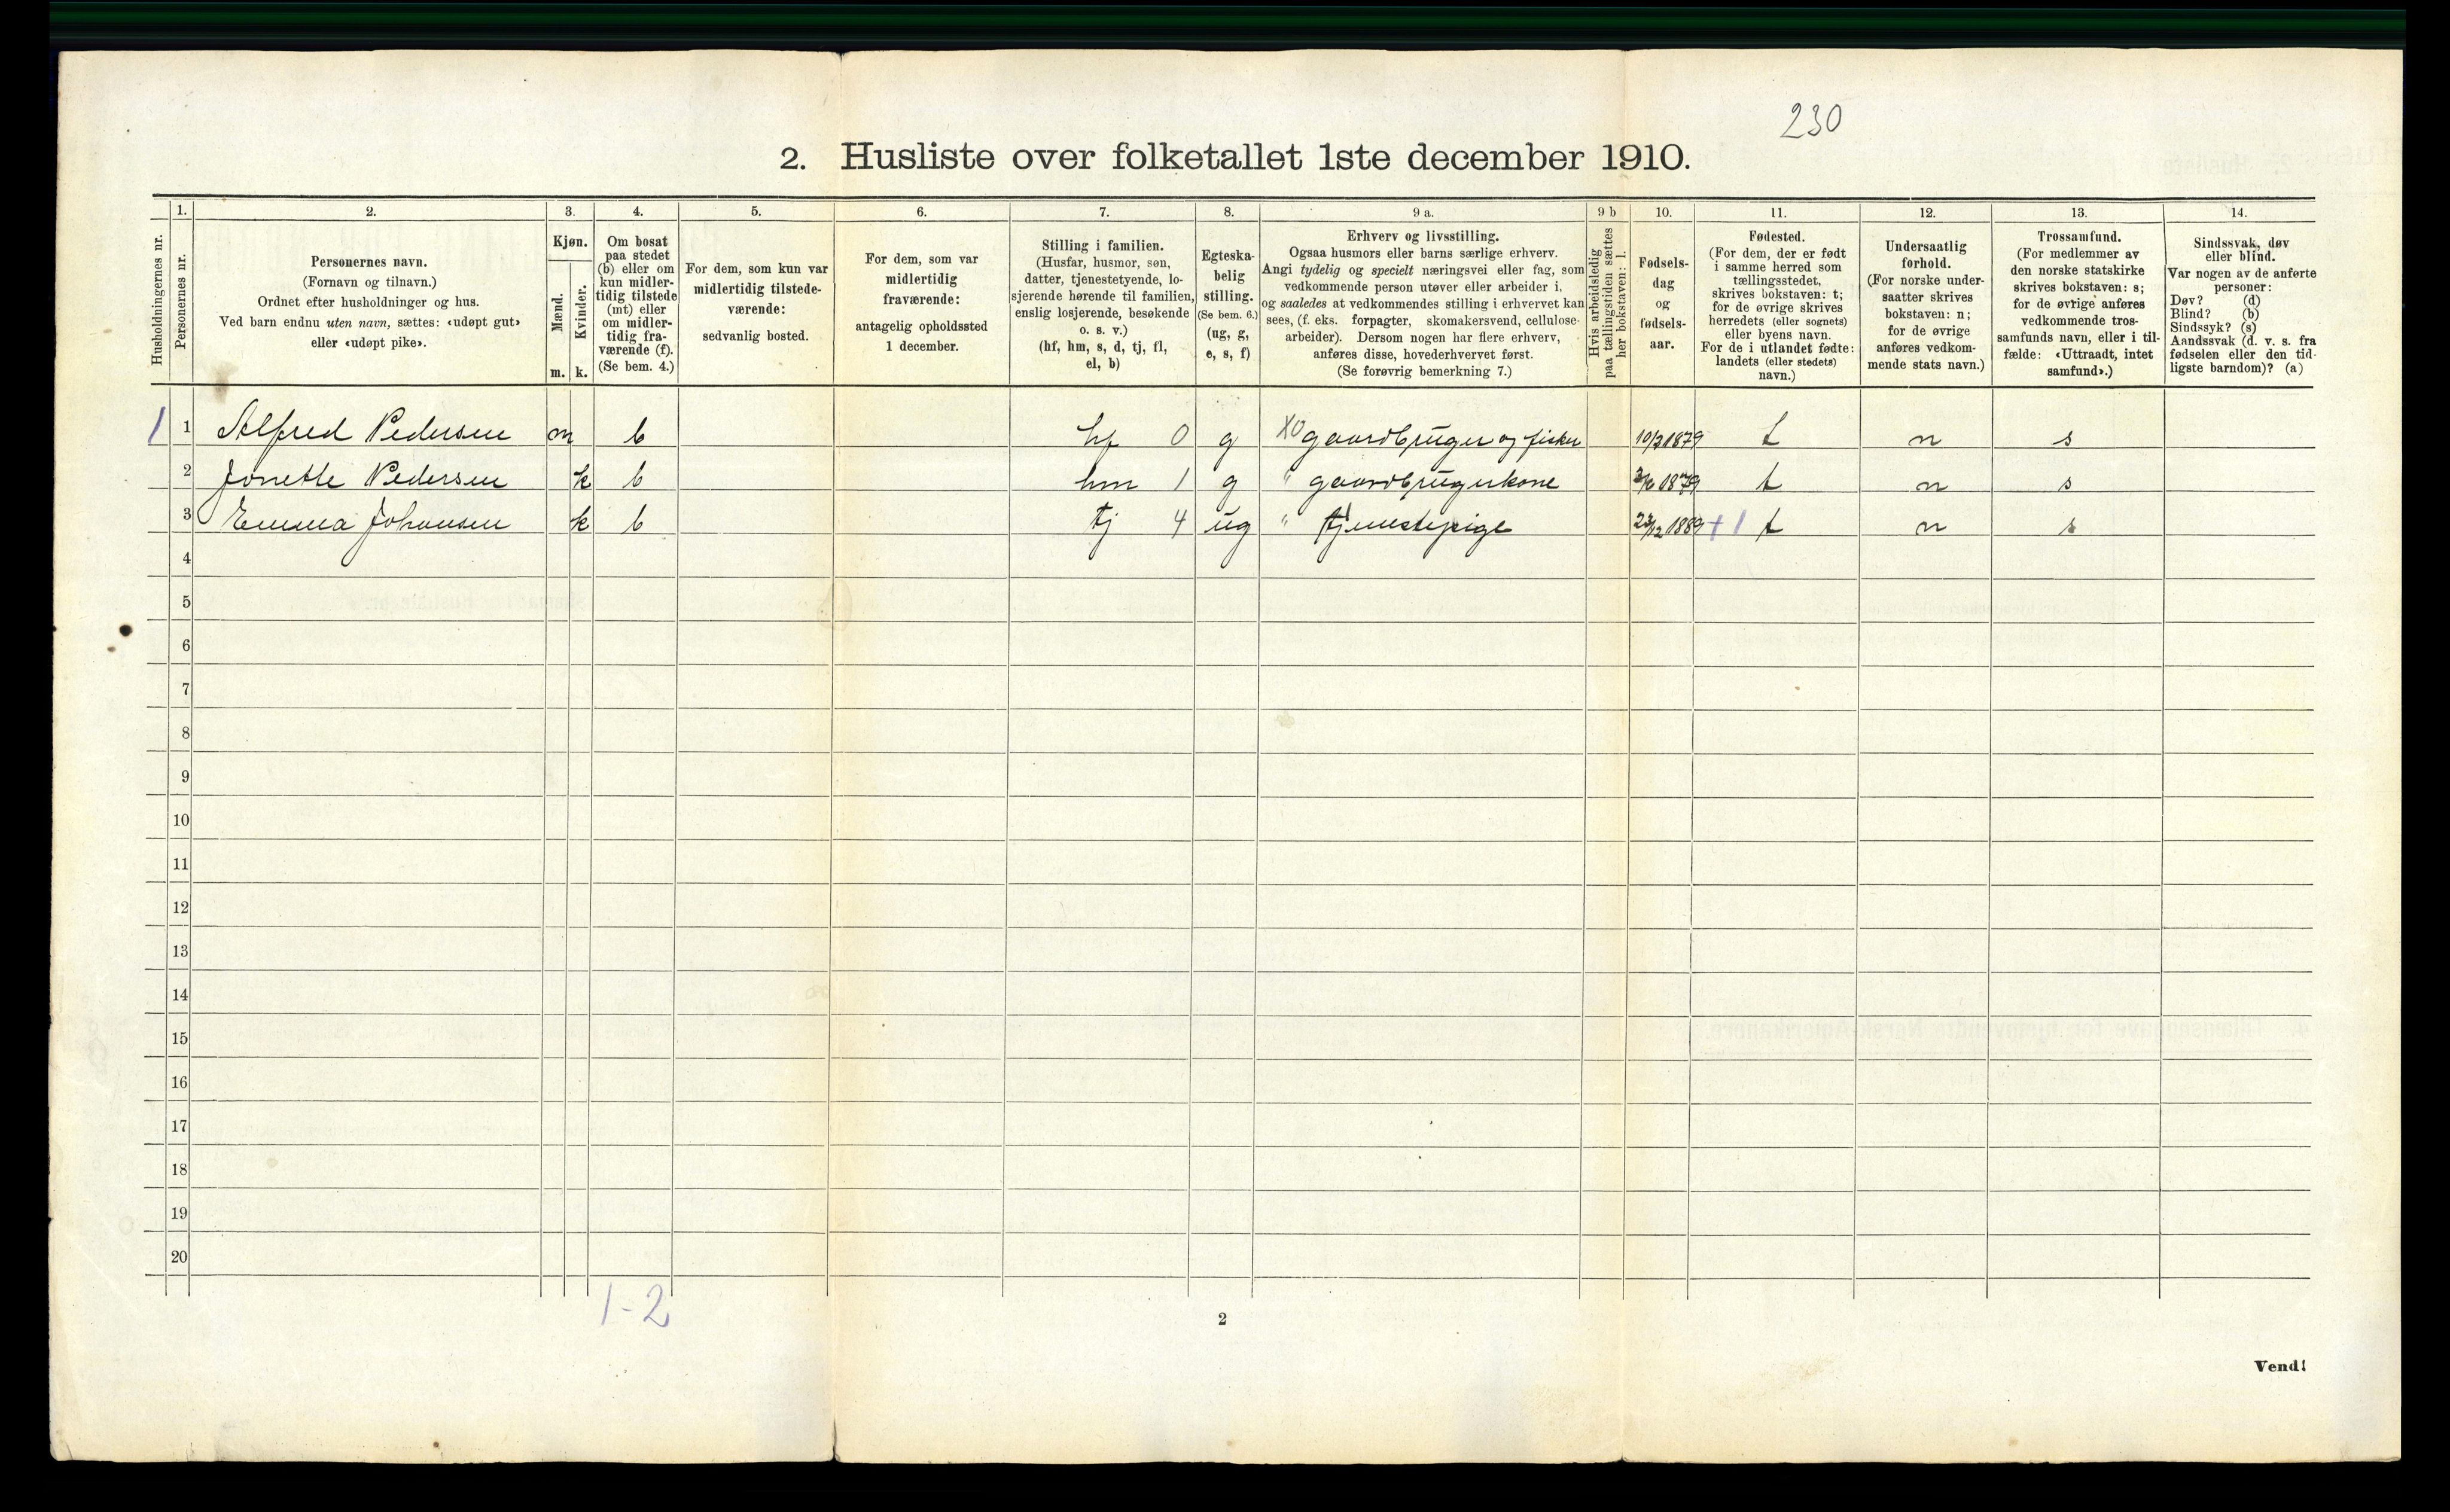 230
2. Husliste over folketallet 1ste december 1910.
Husholdningernes nr.
1.
Personernes nr.
2.
Personernes navn.
(Fornavn og tilnavn.)
Ordnet efter husholdninger og hus.
Ved barn endnu uten navn, sættes: «udøpt gut»
eller «udøpt pike».
3.
Kjøn.
Mænd.
Kvinder.
m. k.
4.
Om bosat
paa stedet
(b) eller om
kun midler-
tidig tilstede
(mt) eller
om midler-
tidig fra-
værende (f).
(Se bem. 4.)
5.
For dem, som kun var
midlertidig tilstede-
værende:
sedvanlig bosted.
6.
For dem, som var
midlertidig
fraværende:
antagelig opholdssted
1 december.
7.
Stilling i familien.
(Husfar, husmor, søn,
datter, tjenestetyende, lo-
sjerende hørende til familien,
enslig losjerende, besøkende
o. s. v.)
(hf, hm, s, d, tj, fl,
el, b)
8.
Egteska-
belig
stilling.
(Se bem. 6.)
(ug, g,
e, s, f)
9 a.
Erhverv og livsstilling.
Ogsaa husmors eller barns særlige erhverv.
Angi tydelig og specielt næringsvei eller fag, som
vedkommende person utøver eller arbeider i,
og saaledes at vedkommendes stilling i erhvervet kan
sees, (f. eks. forpagter, skomakersvend, cellulose-
arbeider). Dersom nogen har flere erhverv,
anføres disse, hovederhvervet først.
(Se forøvrig bemerkning 7.)
9 b
Hvis arbeidsledig
paa tællingstiden sættes
her bokstaven: l.
10.
Fødsels-
dag
og
fødsels-
aar.
11.
Fødested.
(For dem, der er født
i samme herred som
tællingsstedet,
skrives bokstaven: t;
for de øvrige skrives
herredets (eller sognets)
eller byens navn.
For de i utlandet fødte:
landets (eller stedets)
navn.)
12.
Undersaatlig
forhold.
(For norske under-
saatter skrives
bokstaven: n;
for de øvrige
anføres vedkom-
mende stats navn.)
13.
Trossamfund.
(For medlemmer av
den norske statskirke
skrives bokstaven: s;
for de øvrige anføres
vedkommende tros-
samfunds navn, eller i til-
fælde: «Uttraadt, intet
samfund».)
14.
Sindssvak, døv
eller blind.
Var nogen av de anførte
personer:
Døv? (d)
Blind? (b)
Sindssyk? (s)
Aandssvak (d. v. s. fra
fødselen eller den tid-
ligste barndom)? (a)
1 1 Alfred Pedersen m b hf 0 g X0 gaardbruger og fisker 10/2 1879 t n s
2 Jonette Pedersen k b hm 1 g " gaardbrugerkone 1879 t n s
3 Emma Johansen k b tj 4 ug " tjenestepige 1889 + 1 t n s
4
5
6
7
8
9
10
11
12
13
14
15
16
17
18
19
20
1-2
2
Vend!